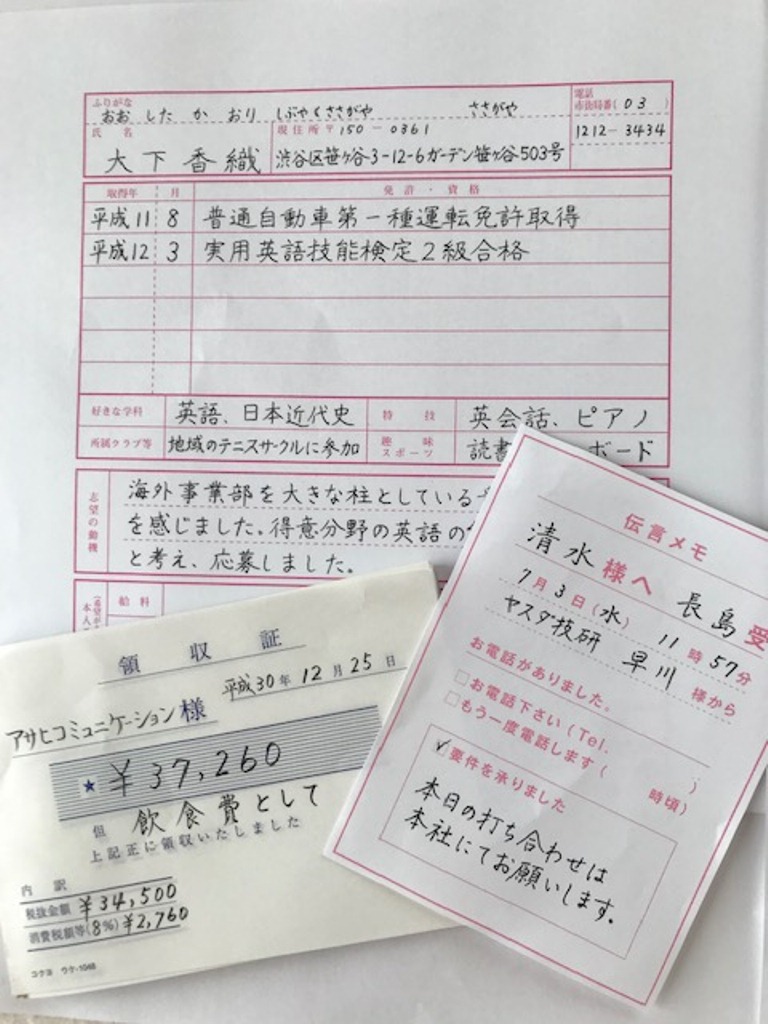 ふりがな
おお した か おり しぶやくささがや ささがや
電話
市街局番(03)
氏 名
現住所 〒150-0361
1212-3434
大下香織 渋谷区笹ヶ谷3-12-6ガーデン笹ヶ谷503号
取得年 月 免許・資格
平成11 8 普通自動車第一種運転免許取得
平成12 3 実用英語技能検定2級合格
好きな学科 英語、日本近代史 特技 英会話、ピアノ
所属クラブ等 地域のテニスサークルに参加 趣味 スポーツ 読書 ボード
志望の動機
海外事業部を大きな柱としている
を感じました。得意分野の英語の
と考え、応募しました。
給料
領収証
平成30年12月25日
アサヒコミュニケーション様
★ ¥37,260
但 飲食費として
上記正に領収いたしました
内訳
税抜金額 ¥34,500
消費税額等(8%) ¥2,760
コクヨ ウケ-1048
伝言メモ
清水様へ 長島受
7月3日(水) 11時57分
ヤスダ技研 早川 様から
お電話がありました。
□お電話下さい(Tel.
□もう一度電話します( 時頃)
✓要件を承りました
本日の打ち合わせは
本社にてお願いします。